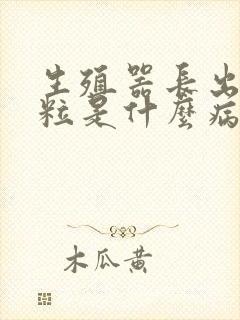 生殖器長出
粒是什麼病
木瓜黄